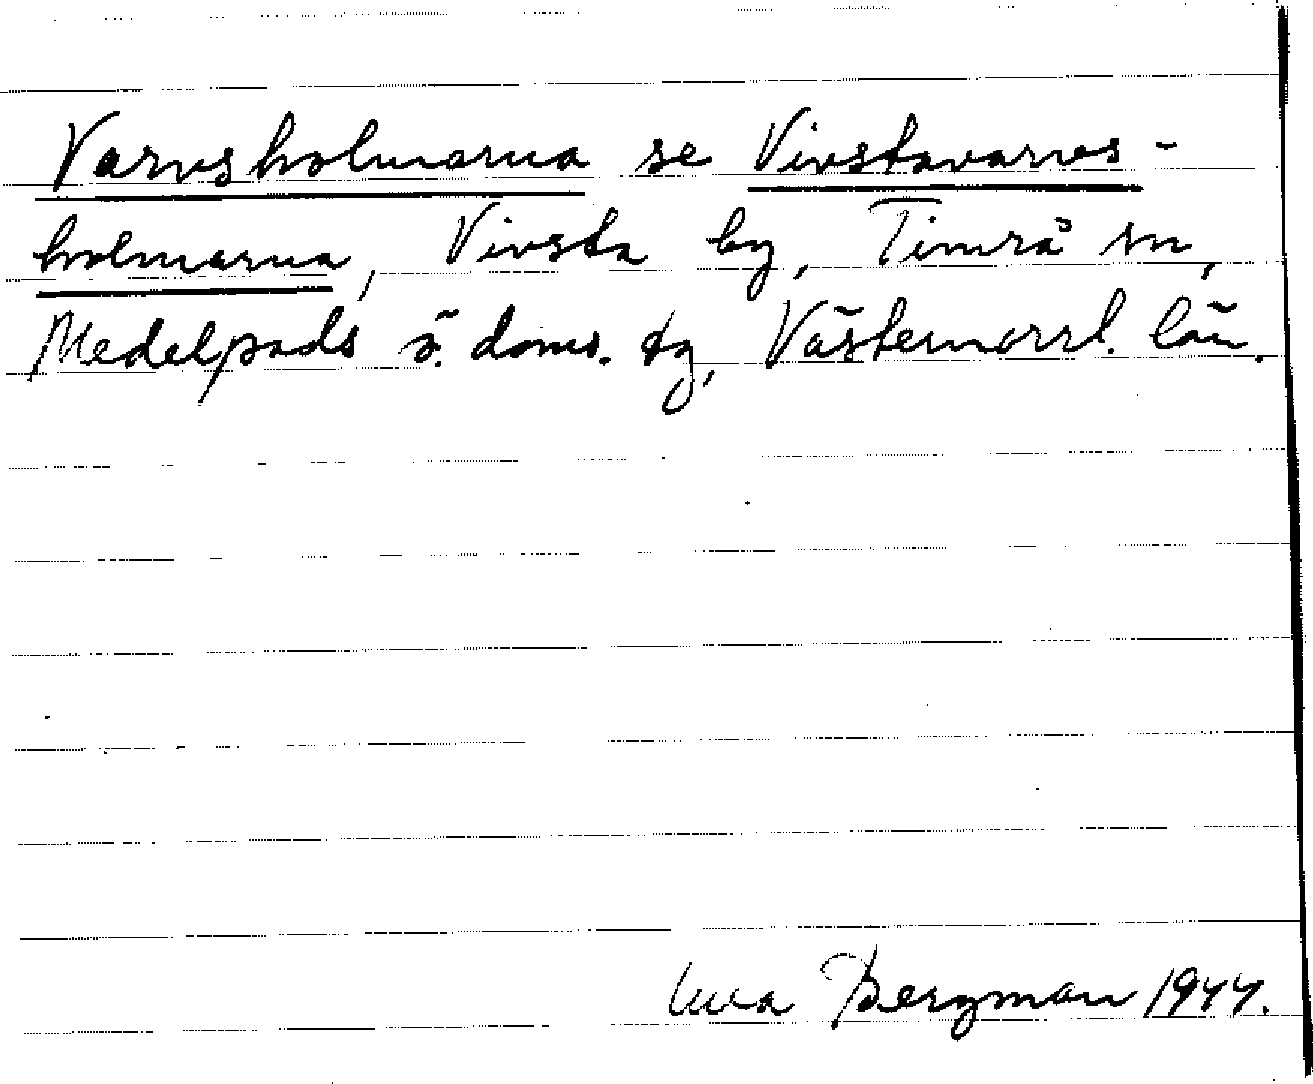 Varvsholmarna se Vivstavarvs-
holmarna, Vivsta by, Timrå sn,
Medelpads ö. doms. tg, Västernorrl. län.
Bergman 1944.